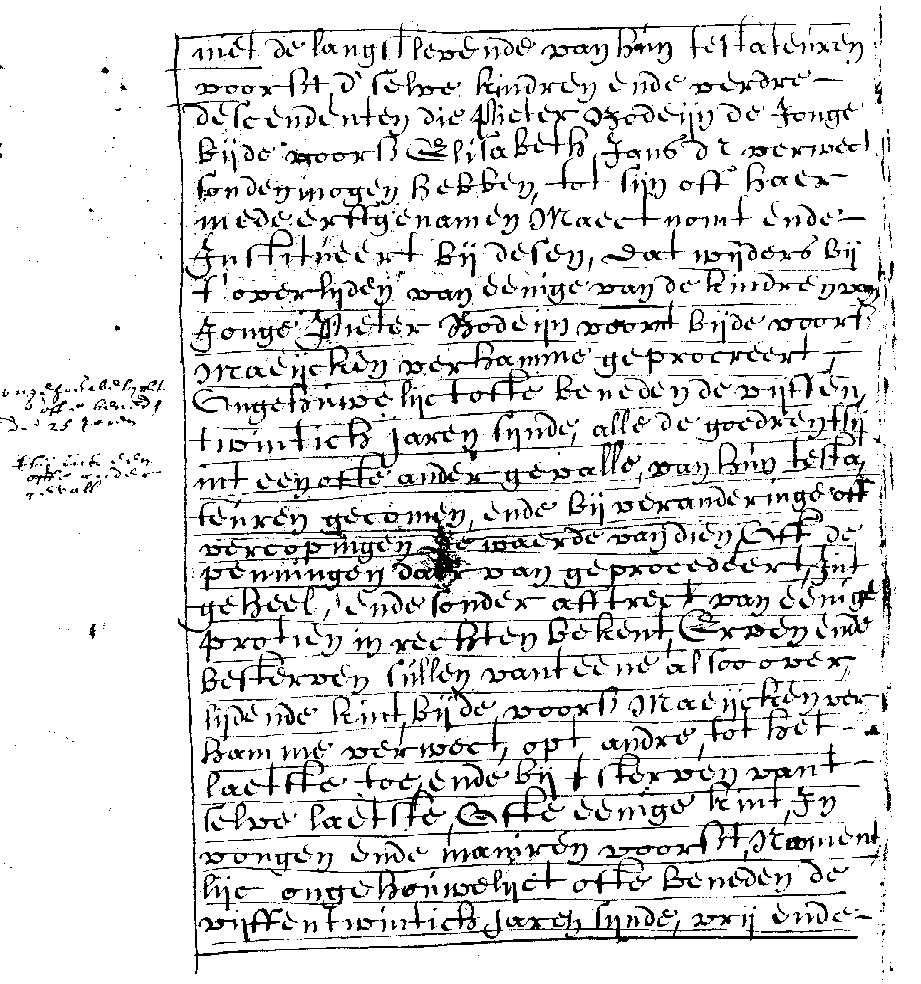 met de langstlevende van hun testateuren
voorsz, d'selve kindren ende verdre
descendenten die Pieter Bodeijn de Jonge
bijde voors Elisabeth Jans dr verwect
sonden mogen hebben, tot sijn off haer
mede erffgenamen Maect nomt ende
Institueert bij desen, dat wijders bij
t'overlijden van eenige van de kindren van
Jonge Pieter Bodeijn voorn bijde voorsz
Maeijcken verhamme geprocreert,
Ongehuwelijct ofte beneden de vijffen,
twintich jaren sijnde, alle de goedren tsij
int een ofte ander gevalle, van hun testa,
teuren gecomen, ende bij veranderinge off
vercopingen de waerde van dien Off de
penningen daer van geprocedeert, Int
geheel, ende sonder afftrect van eenige
protien in rechten bekent, Erven ende
besterven sullen vant eene alsoo over,
lijdende kint, bijde voors Maeijcken ver
hamme verwect, opt andre, tot het
laetste toe, ende bij t sterven vant
selve laetste, Ofte eenige kint, In
vougen ende maniren voorsz, Nament
lijc ongehouwelijct ofte beneden de
vijffentwintich Jaren sijnde, vrij ende
ongehouwelijct
ofte beneden
de 25 jaren
tsij int een
ofte ander
gevall